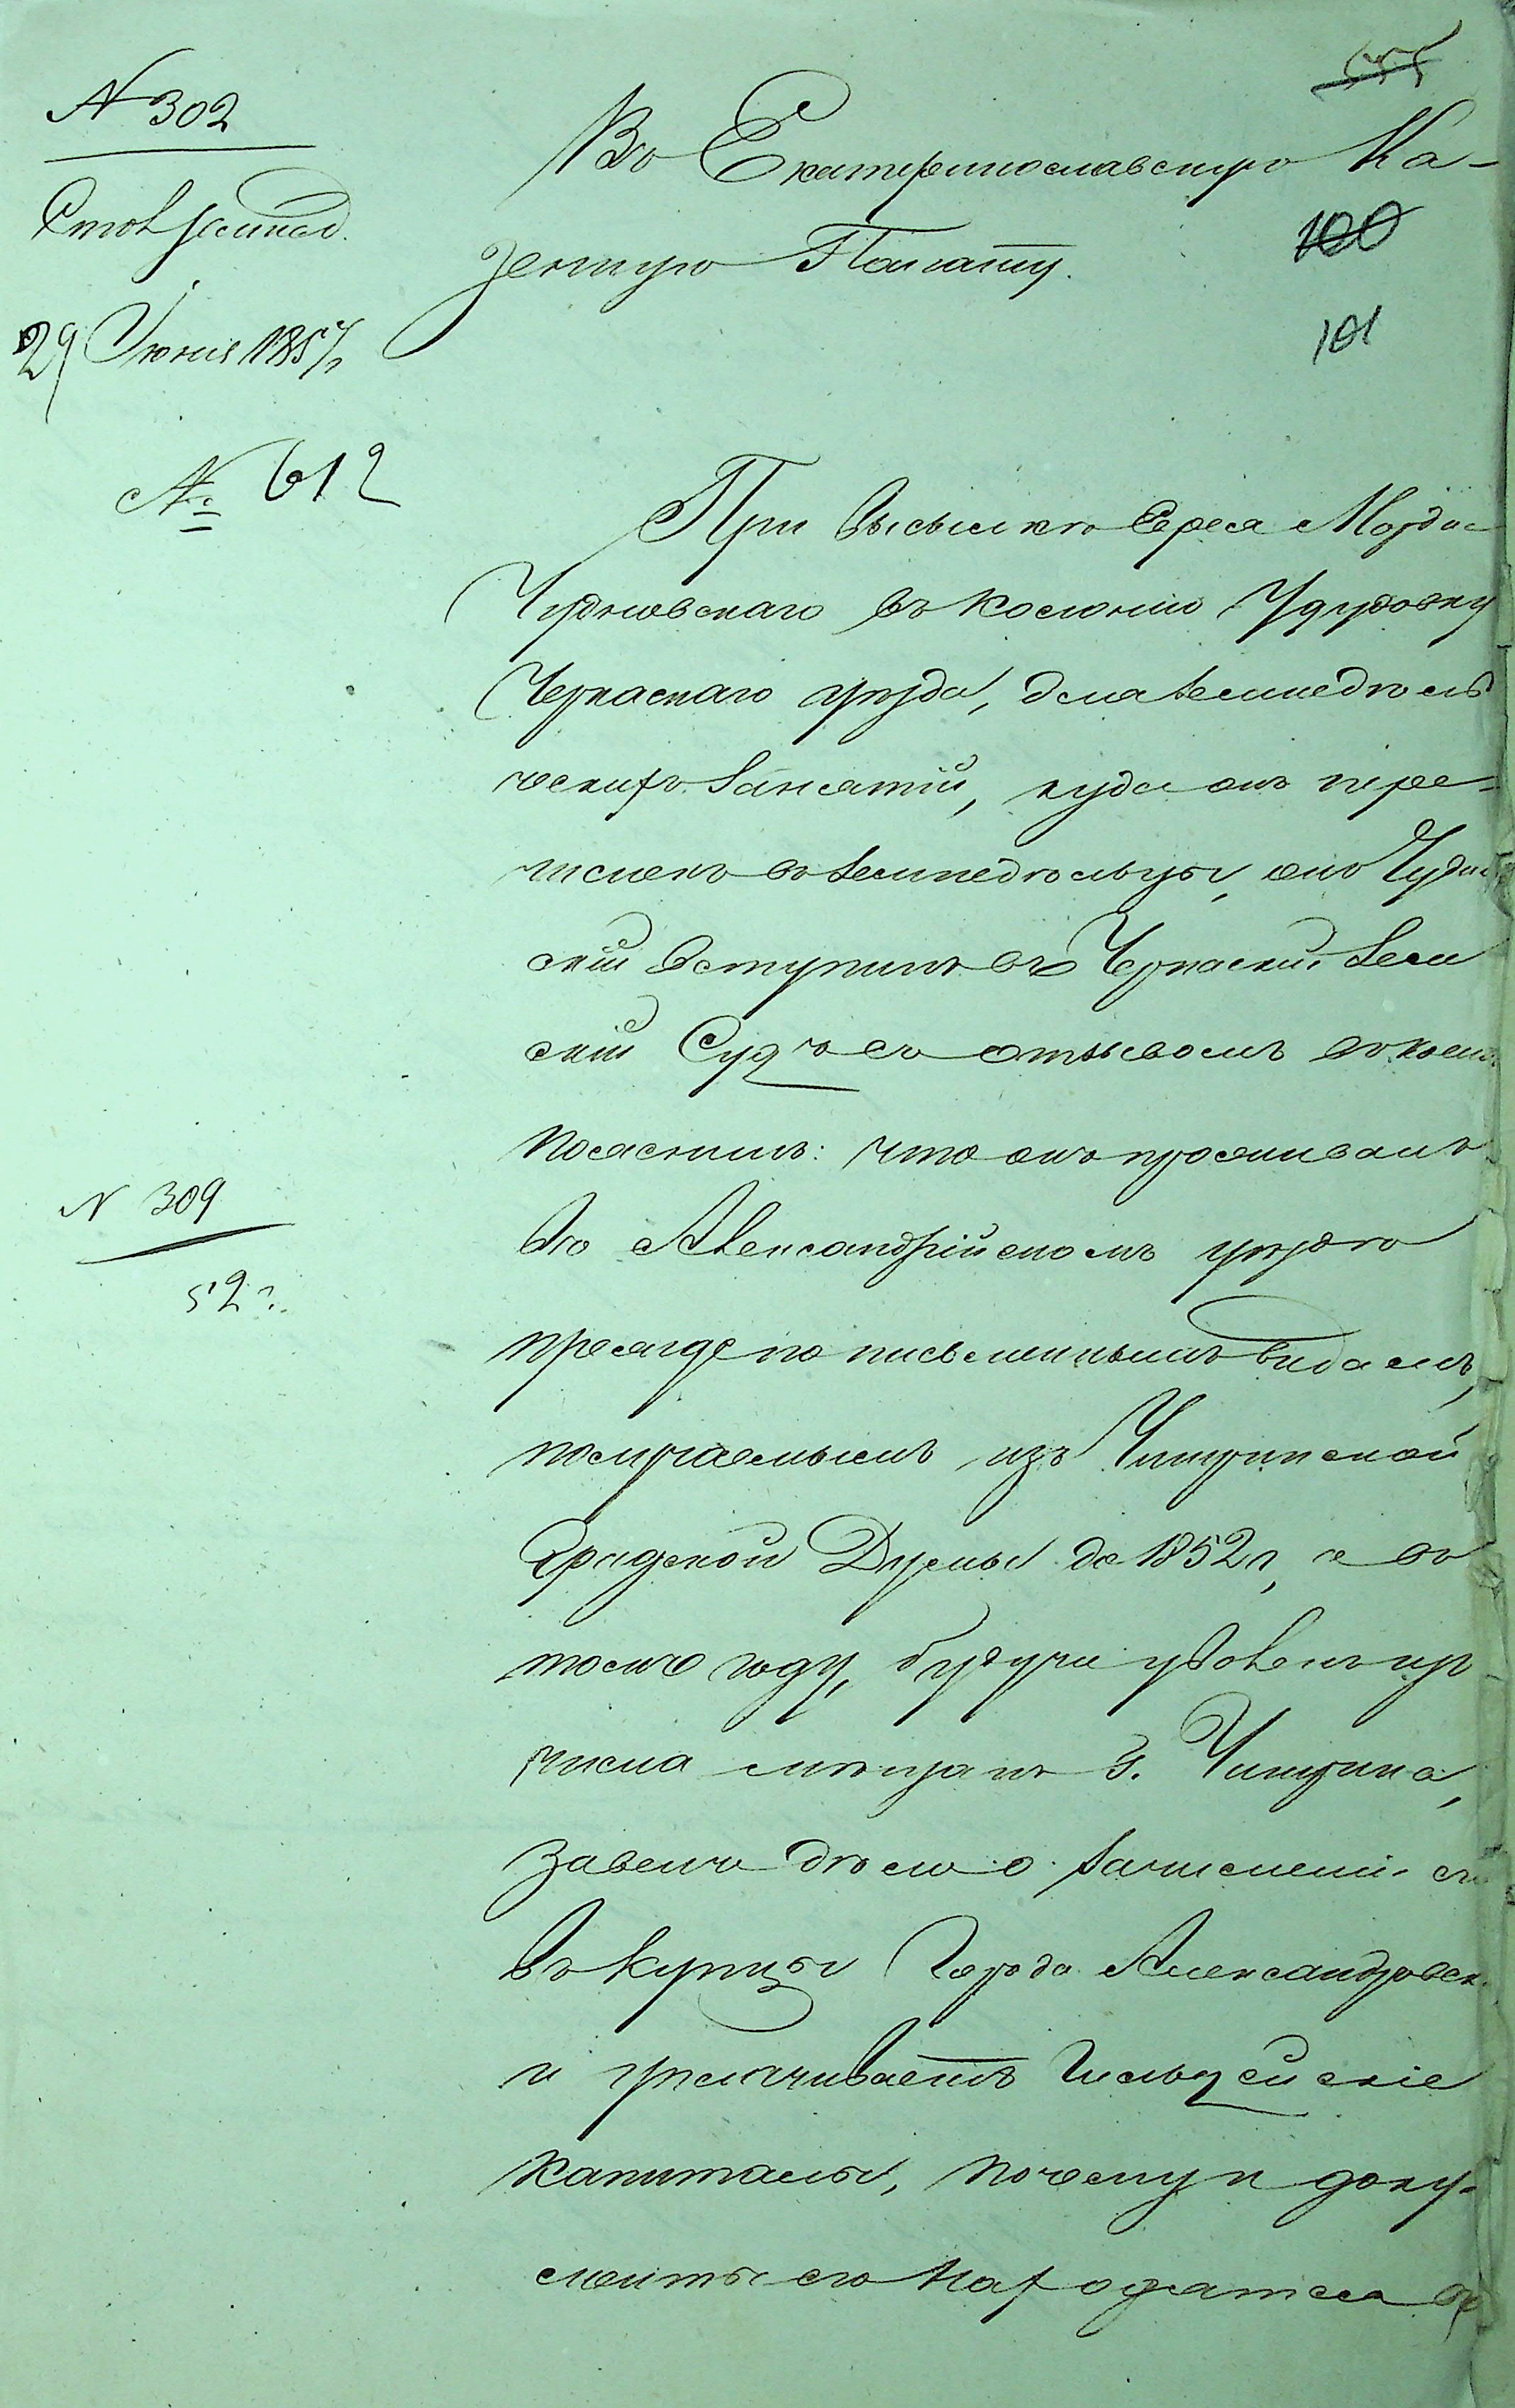 555
N 302
Въ Екатеринославскую Ка-
зенную Палату.
100
101
29 Іюня 1857 г.
№ 612
При высылкѣ Еврея Мордка
Чудновскаго въ колонію
Черкаскаго уѣзда, для земледѣль
ческихъ занятій, куда онъ пере-
численъ въ земледѣльцы, онъ Чуднов
скій вступилъ въ Черкаскій Зем
скій Судъ съ отзывомъ въ коемъ
пояснилъ: что онъ проживалъ
въ Александрійскомъ уѣздѣ
N 309
прежде по письменнымъ видамъ,
52
получаемымъ изъ Чигиринской
Градской Думы до 1852 г, а въ
томъ году, будучи уволенъ изъ
числа мѣщанъ г. Чигирина,
завелъ дѣло о зачисленіи его
въ купцы Города Александровск
и уплачиваетъ Гильдейскіе
капиталы, почему и доку-
менты его находятся въ